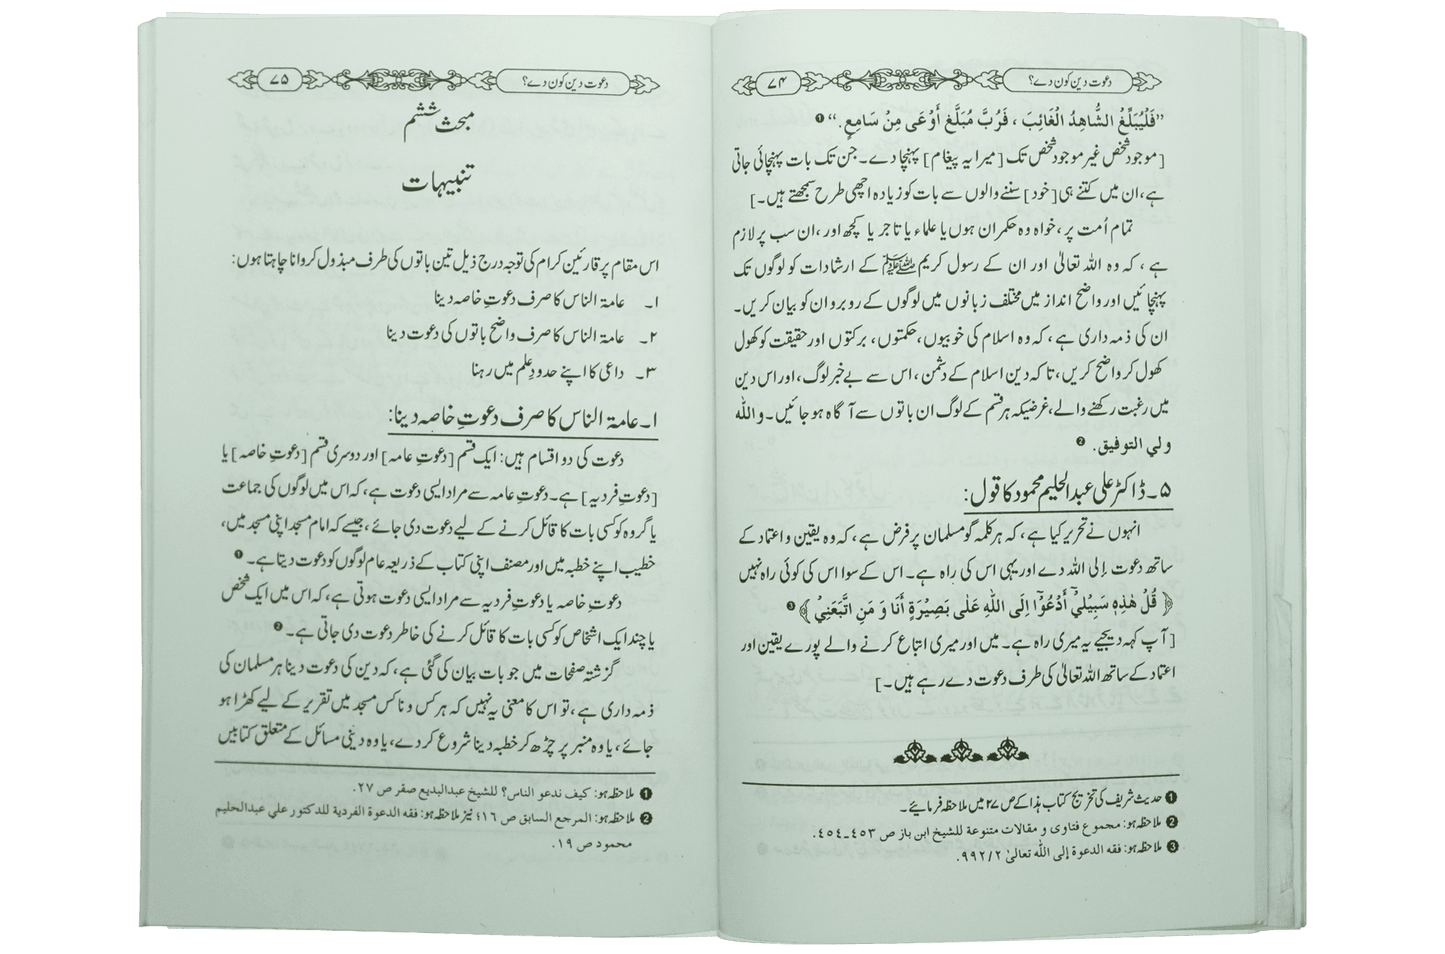 دعوت دین کون دے؟
۷۴
”فَلْيُبَلِّغُ الشَّاهِدُ الْغَائِبَ ، فَرُبَّ مُبَلَّغٍ أَوْعَى مِنْ سَامِعٍ .“ ❶
[موجود شخص غیر موجود شخص تک [میرا یہ پیغام] پہنچا دے۔ جن تک بات پہنچائی جاتی
ہے، ان میں کتنے ہی [خود] سننے والوں سے بات کو زیادہ اچھی طرح سمجھتے ہیں۔]
تمام اُمت پر، خواہ وہ حکمران ہوں یا علماء یا تاجر یا کچھ اور، ان سب پر لازم
ہے، کہ وہ اللہ تعالیٰ اور ان کے رسول کریم ﷺ کے ارشادات کو لوگوں تک
پہنچائیں اور واضح انداز میں مختلف زبانوں میں لوگوں کے روبرو ان کو بیان کریں۔
ان کی ذمہ داری ہے، کہ وہ اسلام کی خوبیوں، حکمتوں، برکتوں اور حقیقت کو کھول
کھول کر واضح کریں، تا کہ دین اسلام کے دشمن، اس سے بے خبر لوگ، اور اس دین
میں رغبت رکھنے والے، غرضیکہ ہر قسم کے لوگ ان باتوں سے آ گاہ ہو جائیں۔ واللہ
ولي التوفيق. ❷
۵۔ ڈاکٹر علی عبدالحلیم محمود کا قول:
انہوں نے تحریر کیا ہے، کہ ہر کلمہ گو مسلمان پر فرض ہے، کہ وہ یقین و اعتماد کے
ساتھ دعوت إلی اللہ دے اور یہی اس کی راہ ہے۔ اس کے سوا اس کی کوئی راہ نہیں
﴿ قُلْ هٰذِهٖ سَبِيْلِيْٓ أَدْعُوْٓا إِلَى اللّٰهِ عَلٰى بَصِيْرَةٍ أَنَا وَ مَنِ اتَّبَعَنِيْ ﴾ ❸
[آپ کہہ دیجیے یہ میری راہ ہے۔ میں اور میری اتباع کرنے والے پورے یقین اور
اعتماد کے ساتھ اللہ تعالیٰ کی طرف دعوت دے رہے ہیں۔]
❶ حدیث شریف کی تخریج کتاب ہذا کے ص ۲۷ میں ملاحظہ فرمائیے۔
❷ ملاحظہ ہو: مجموع فتاوى و مقالات متنوعة للشيخ ابن باز ص ٤٥٣ـ٤٥٤.
❸ ملاحظہ ہو: فقه الدعوة إلى الله تعالىٰ ٩٩٢/٢.
دعوت دین کون دے؟
۷۵
مبحث ششم
تنبیہات
اس مقام پر قارئین کرام کی توجہ درج ذیل تین باتوں کی طرف مبذول کروانا چاہتا ہوں:
۱۔ عامۃ الناس کا صرف دعوتِ خاصہ دینا
۲۔ عامۃ الناس کا صرف واضح باتوں کی دعوت دینا
۳۔ داعی کا اپنے حدودِ علم میں رہنا
۱۔ عامۃ الناس کا صرف دعوتِ خاصہ دینا:
دعوت کی دو اقسام ہیں: ایک قسم [دعوتِ عامہ] اور دوسری قسم [دعوتِ خاصہ] یا
[دعوتِ فردیہ] ہے۔ دعوتِ عامہ سے مراد ایسی دعوت ہے، کہ اس میں لوگوں کی جماعت
یا گروہ کو کسی بات کا قائل کرنے کے لیے دعوت دی جائے، جیسے کہ امام مسجد اپنی مسجد میں،
خطیب اپنے خطبہ میں اور مصنف اپنی کتاب کے ذریعہ عام لوگوں کو دعوت دیتا ہے۔ ❶
دعوتِ خاصہ یا دعوتِ فردیہ سے مراد ایسی دعوت ہوتی ہے، کہ اس میں ایک شخص
یا چند ایک اشخاص کو کسی بات کا قائل کرنے کی خاطر دعوت دی جاتی ہے۔ ❷
گزشتہ صفحات میں جو بات بیان کی گئی ہے، کہ دین کی دعوت دینا ہر مسلمان کی
ذمہ داری ہے، تو اس کا معنی یہ نہیں کہ ہر کس و ناکس مسجد میں تقریر کے لیے کھڑا ہو
جائے، یا وہ منبر پر چڑھ کر خطبہ دینا شروع کر دے، یا وہ دینی مسائل کے متعلق کتابیں
❶ ملاحظہ ہو: كيف ندعو الناس؟ للشيخ عبدالبديع صقر ص ۲۷.
❷ ملاحظہ ہو: المرجع السابق ص ١٦؛ نیز ملاحظہ ہو: فقه الدعوة الفردية للدكتور علي عبدالحليم
محمود ص ١٩.